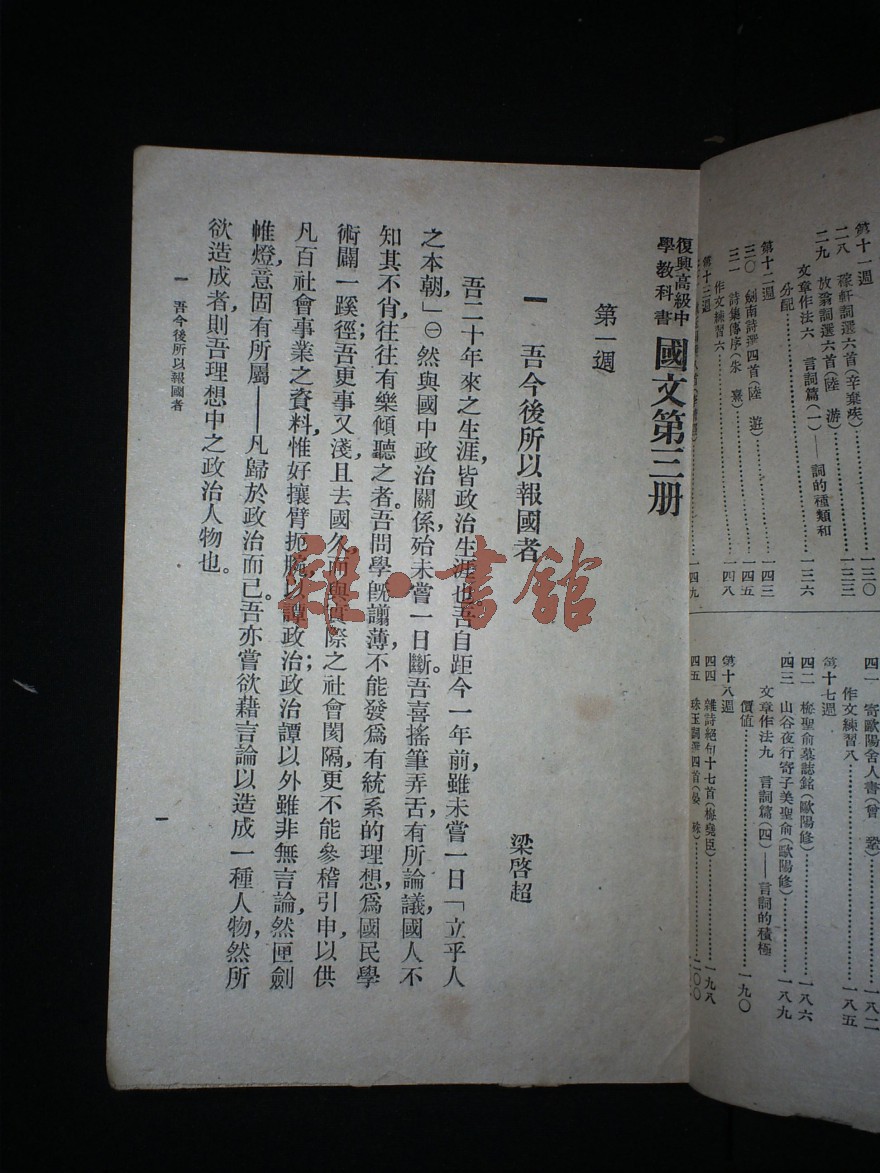 第十一週
二八 稼軒詞選六首(辛棄疾)……一三〇
二九 放翁詞選六首(陸 游)……一三三
文章作法六 言詞篇(一)——詞的種類和
分配……一三六
第十二週
三〇 劍南詩選四首(陸 游)……一四三
三一 詩集傳序(朱 熹)……一四五
作文練習六……一四八
第十三週
一四九
四一 寄歐陽舍人書(曾 鞏)……一八二
作文練習八……一八五
第十七週
四二 梅聖俞墓誌銘(歐陽修)……一八六
四三 山谷夜行寄子美聖俞(歐陽修)……一八九
文章作法九 言詞篇(四)——言詞的積極
價値……一九〇
第十八週
四四 雜詩絕句十七首(梅堯臣)……一九八
四五 珠玉詞選四首(晏 殊)……二〇〇
復興高級中學教科書 國文第三册
第一週
一 吾今後所以報國者
梁啓超
吾二十年來之生涯,皆政治生涯也。吾自距今一年前,雖未嘗一日「立乎人
之本朝,」㊀然與國中政治關係,殆未嘗一日斷。吾喜搖筆弄舌,有所論議,國人不
知其不肖,往往有樂傾聽之者。吾問學旣譾薄,不能發爲有統系的理想,爲國民學
術闢一蹊徑;吾更事又淺,且去國久,而與實際之社會閡隔,更不能參稽引申,以供
凡百社會事業之資料,惟好攘臂扼腕以譚政治;政治譚以外雖非無言論,然匣劍
帷燈,意固有所屬——凡歸於政治而已。吾亦嘗欲藉言論以造成一種人物,然所
欲造成者,則吾理想中之政治人物也。
一 吾今後所以報國者
一
雜·書館